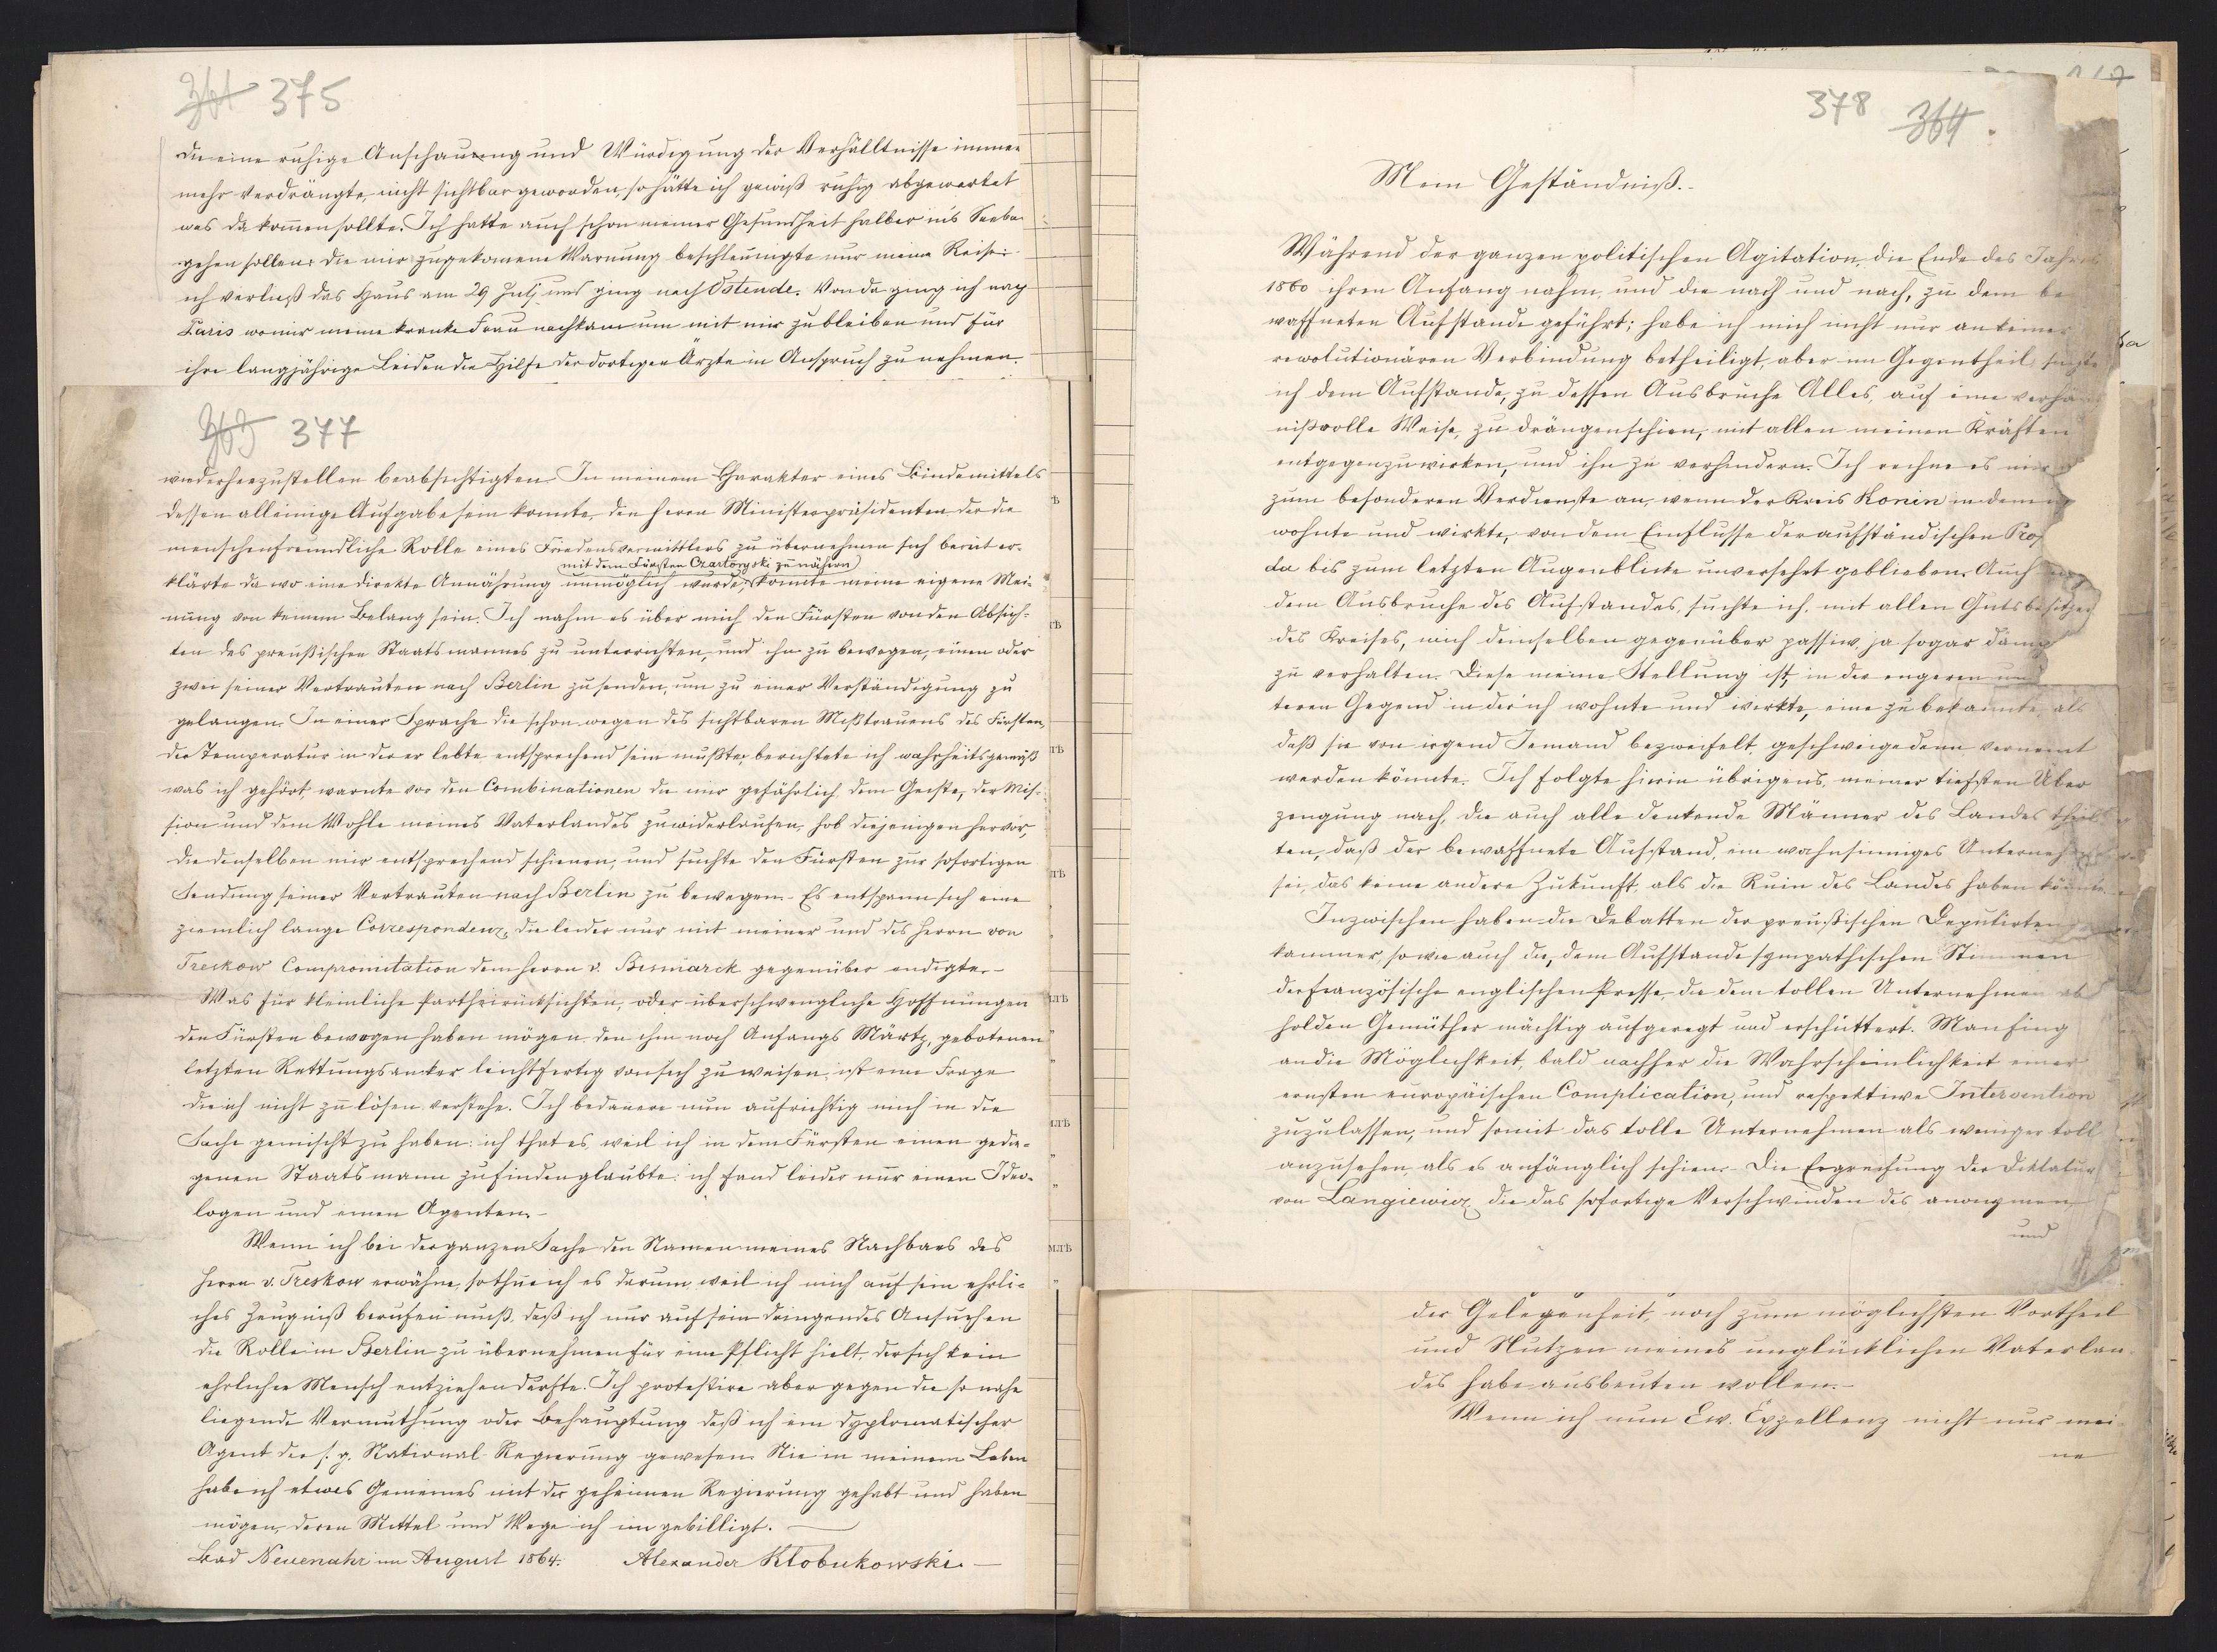 361 375
die eine ruhige Anschauung und Würdigung der Verhälltnisse immer
mehr verdrängte, nicht sichtbar geworden, so hätte ich gewiß ruhig abgewartet
was da komen sollte. Ich hatte auch schon meiner Gesundheit halber in's Seeba
gehen sollen: die mir zugekomene Warnung beschleunigte nur meine Reise:
ich verließ das Haus am 29 July und ging nach Ostende. Von da ging ich nach
Paris wo mir meine kranke Frau nachkam um mit mir zu bleiben und für
ihre langjährige Leiden die Hilfe der dortigen Ärzte in Anspruch zu nehmen.
363 377
wiederherzustellen beabsichtigten. In meinem Charakter eines Bindemittels
dessen alleinige Aufgabe sein konnte, den Herrn Ministerpräsidenten der die
menschenfreundliche Rolle eines Friedensvermittlers zu übernehmen sich bereit er-
mit dem Fürsten Czartoryski zu nähern
klärte da wo eine direkte Annährung unmöglich wurde, konnte meine eigene Mei-
nung von keinem Belang sein. Ich nahm es über mich den Fürsten von den Absich-
ten des preußischen Staatsmannes zu unterrichten, und ihn zu bewegen, einen oder
zwei seiner Vertrauten nach Berlin zu senden, um zu einer Verständigung zu
gelangen. In einer Sprache die schon wegen des sichtbaren Mißtrauens des Fürsten,
der Temperatur in der er lebte entsprechend sein mußte, berichtete ich wahrheitsgemäß
was ich gehört, warnte vor den Combinationen die mir gefährlich, dem Geiste, der Mis-
sion und dem Wohle meines Vaterlandes zuwiderlaufen, hob diejenigen hervor,
die denselben mir entsprechend schienen, und suchte den Fürsten zur sofortigen
Sendung seiner Vertrauten nach Berlin zu bewegen. Es entspann sich eine
ziemlich lange Correspondenz, die leider nur mit meiner und des Herrn von
Treskow Compromitation dem Herrn v. Bismarck gegenüber endigte.-
Was für kleinliche Partheirücksichten, oder überschwengliche Hoffnungen
den Fürsten bewogen haben mögen den ihm noch Anfangs Märtz, gebotenen
letzten Rettungsanker leichtfertig von sich zu weisen, ist eine Frage
die ich nicht zu lösen verstehe. Ich bedauere nun aufrichtig mich in die
Sache gemischt zu haben: ich that es, weil ich in dem Fürsten einen gedie-
genen Staatsmann zu finden glaubte: ich fand leider nur einen Ideo-
logen und einen Agenten.-
Wenn ich bei der ganzen Sache den Namen meines Nachbars des
Herrn v. Treskow erwähne, so thue ich es darum, weil ich mich auf sein ehrli-
ches Zeugniß berufen muß, daß ich nur auf sein dringendes Ansuchen
die Rolle in Berlin zu übernehmen für eine Pflicht hielt, der sich kein
ehrlicher Mensch entziehen dürfte. Ich protestire aber gegen die so nahe
liegende Vermuthung oder Behauptung daß ich ein dyplomatischer
Agent der s. g. National-Regierung gewesen. Nie in meinem Leben
habe ich etwas Gemeines mit der geheimen Regierung gehabt und haben
mögen, deren Mittel und Wege ich nie gebilligt.
Bad Neuenahr im August 1864. Alexander Kłobukowski.-
378 364
Mein Geständniß.-
Während der ganzen politischen Agitation, die Ende des Jahres
1860 ihren Anfang nahm, und die nach und nach, zu dem be
waffneten Aufstande geführt; habe ich mich nicht nur an keiner
revolutionären Verbindung betheiligt, aber im Gegentheil suchte
ich dem Aufstande, zu dessen Ausbruche Alles, auf eine verhäng
nißvolle Weise, zu drängen schien, mit allen meinen Kräften
entgegenzuwirken, und ihn zu verhindern. Ich rechne es mir
zum besonderen Verdienste an, wenn der Kreis Konin in dem
wohnte und wirkte, von dem Einflusse der aufständischen Pro
da bis zum letzten Augenblicke unversehrt geblieben. Auch
dem Ausbruche des Aufstandes, suchte ich, mit allen Gutsbesitzer
des Kreises, mich demselben gegenüber passiw, ja sogar
zu verhalten. Diese meine Stellung ist, in der engeren und
teren Gegend in der ich wohnte und wirkte, eine zu bekannte, als
daß sie von irgend Jemand bezweifelt, geschweige denn verneint
werden könnte. Ich folgte hierin übrigens, meiner tiefsten Über
zeugung nach, die auch alle denkende Männer des Landes theil
ten, daß der bewaffnete Aufstand, ein wahnsinniges Unterneh
sei, das keine andere Zukunft, als die Ruin des Landes haben könnte
Inzwischen haben die Debatten der preußischen Deputirten
kammer, sowie auch die, dem Aufstande sympathischen Stimmen
der französische englischen Presse, die dem tollen Unternehmen ab
holden Gemüther mächtig aufgeregt und erschüttert. Man fing
an die Möglichkeit, bald nachher die Wahrscheinlichkeit einer
ernsten europäischen Complication, und respektiwe Intervention
zuzulassen, und somit das tolle Unternehmen als weniger toll
anzusehen, als es anfänglich schien. Die Ergreifung der Diktatur
von Langiewicz, die das sofortige Verschwinden des anonymen
und
der Gelegenheit, noch zum möglichsten Vortheil
und Nutzen meines unglücklichen Vaterlan-
des habe ausbeuten wollen.-
Wenn ich nun Ew. Exzellenz nicht nur mei-
ne